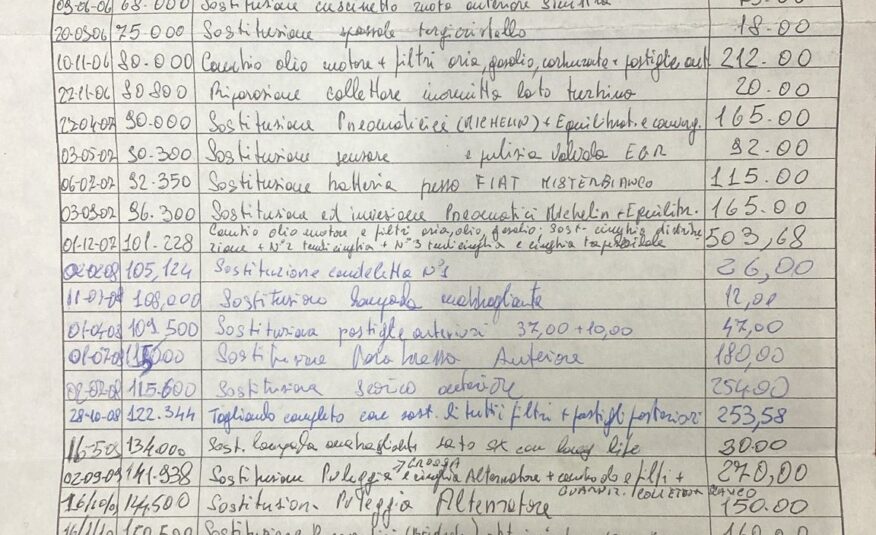 03-06-06 68.000 Sostituzione cuscinetto ruota anteriore sinistra 75.00
20-09-06 75.000 Sostituzione spazzole tergicristallo 18.00
10-11-06 80.000 Cambio olio motore + filtri aria, gasolio, carburante + pastiglie ant 212.00
22-11-06 80800 Riparazione collettore lato turbina 20.00
27-04-07 90.000 Sostituzione Pneumatici (MICHELIN) + Equilibrat. e converg. 165.00
03-05-07 90.300 Sostituzione sensore e pulizia Valvola EGR 92.00
06-07-07 92.350 Sostituzione batteria presso FIAT MISTERBIANCO 115.00
03-09-07 96.300 Sostituzione ed inversione Pneumatici Michelin + Equilibr. 165.00
01-12-07 101.228 Cambio olio motore e filtri aria, olio, gasolio; Sost. cinghia distribu
zione + N°2 tendicinghia + N°3 tendicinghia e cinghia 503,68
02-02-08 105,124 Sostituzione candeletta N°1 26,00
11-03-08 108,000 Sostituzione lampada anabbagliante 12,00
01-04-08 109,500 Sostituzione pastiglie anteriori 37,00+10,00 47,00
01-07-08 115000 Sostituzione Anteriore 180,00
02-07-08 115.600 Sostituzione anteriore 254.00
28-10-08 122.344 Tagliando completo con sost. di tutti filtri + pastigli posteriori 253,58
16-5-09 134.000 Sost. lampada anabbagliante lato sx con long life 30.00
02-09-09 141.938 Sostituzione Puleggia → GROSSA e cinghia Alternatore + cambio olio e filtri + 270,00
GUARNIZ. COLLETTORE SCARICO
16/10/09 144.500 Sostituzion. Puleggia Alternatore 150.00